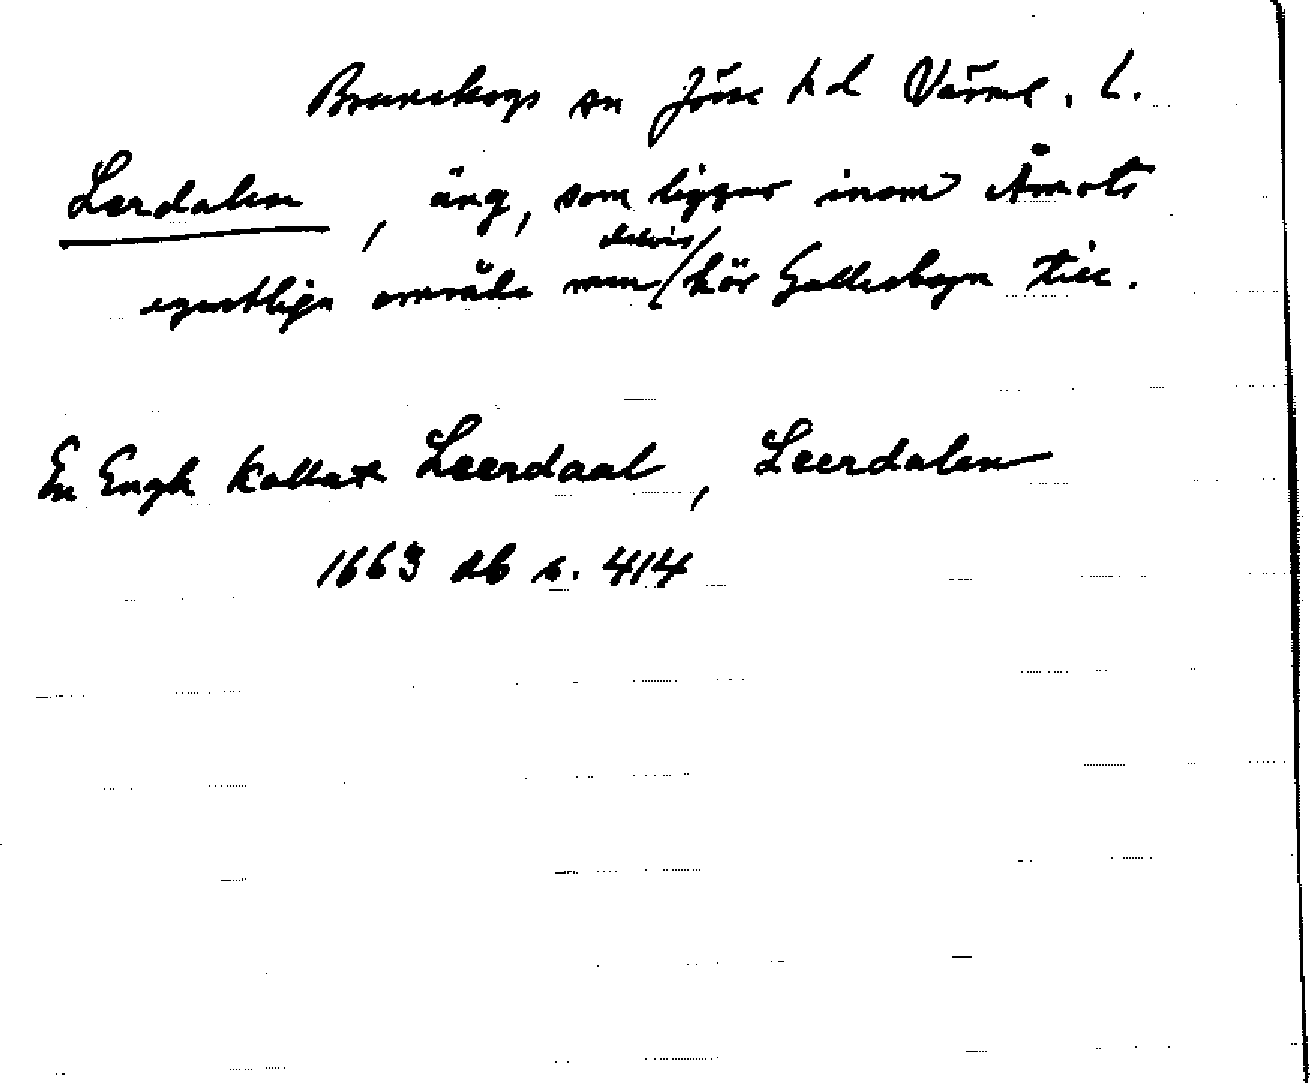 Brunskogs sn Jösse hd Värml. L.
Lerdalen, äng, som ligger inom Åmots
egentliga område men delvis hör Gålleboyn till.
En Engh kallat Leerdaal, Leerdalen
1663 db s. 414